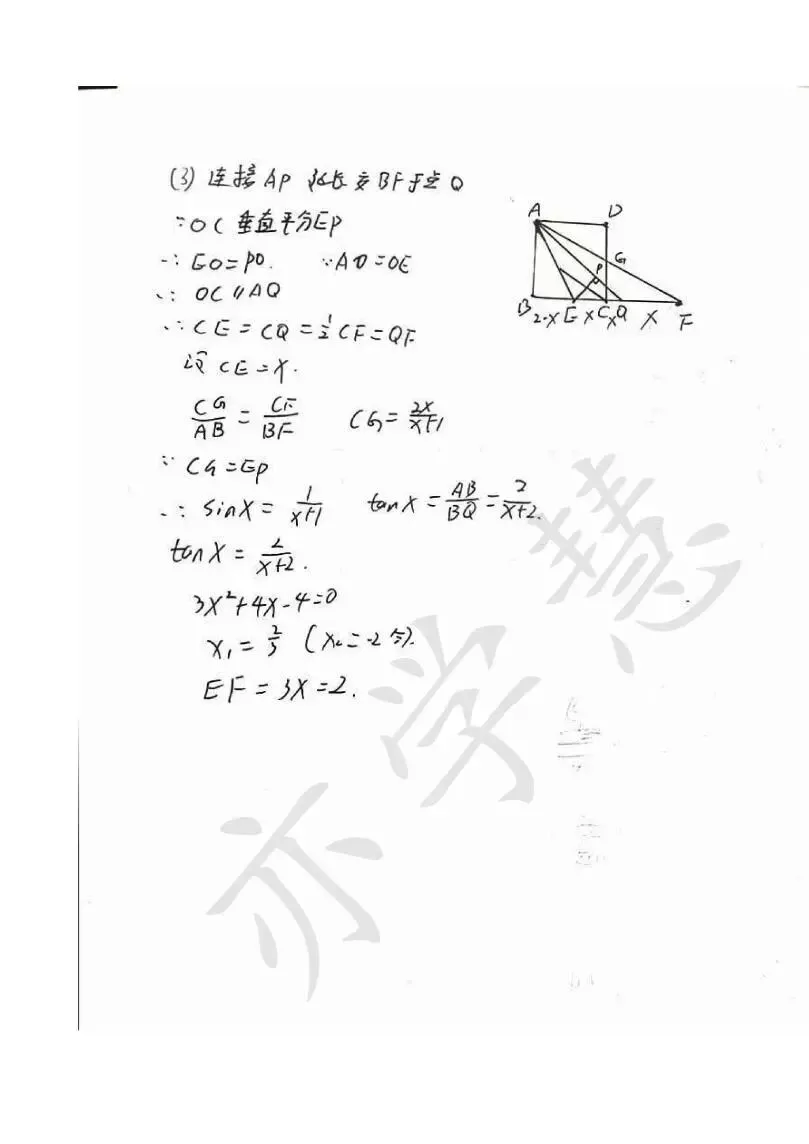 (3) 连接AP 延长交BF于点Q
∵OC垂直平分EP
∴EO=PO. ∵AO=OE
∴ OC∥AQ
∴CE=CQ=½CF=QF
设CE=x.
CG/AB=CF/BF CG=2x/x+1
∵CG=EP
∴sinX=1/x+1 tanX=AB/BQ=2/x+2.
tanX=2/x+2.
3X²+4X-4=0
x₁=2/3 (x₂=-2舍).
EF=3X=2.
A D
P G
B 2-x E x C x Q x F
亦学慧